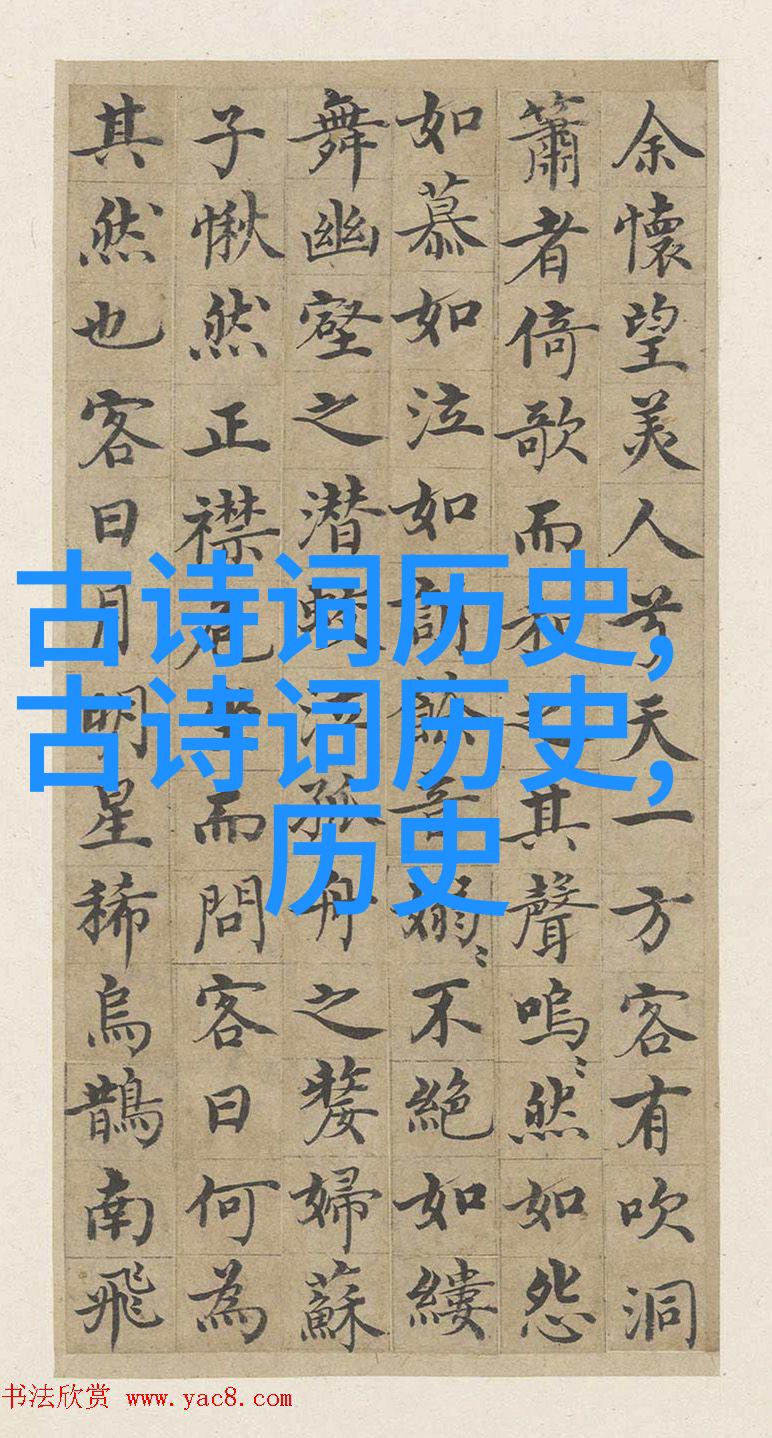 余懷望美人兮天一方客有吹洞
簫者倚歌而和之其聲嗚〻然如怨
如慕如泣如訴餘音嫋〻不絕如縷
舞幽壑之潜蛟泣孤舟之嫠婦蘇
子愀然正襟危坐而問客曰何為
其然也客曰月明星稀烏鵲南飛
古诗词历史,
古诗词历史,
历史
书法欣赏 www.yac8.com